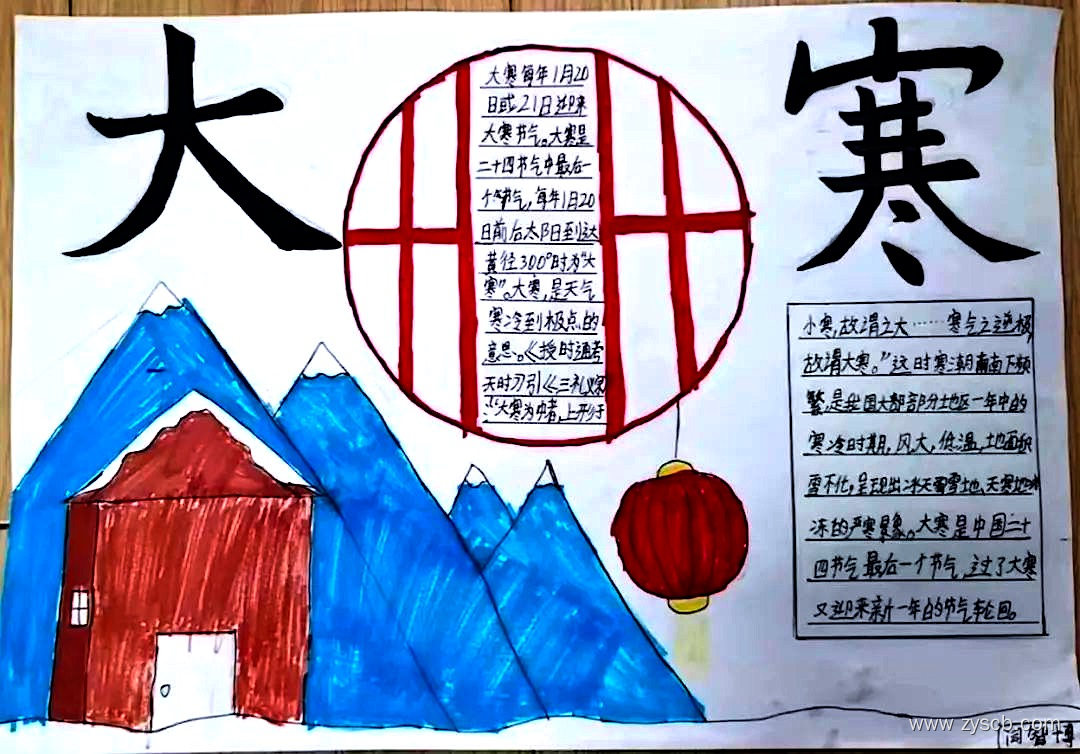 大寒
大寒每年1月20
日或21日迎来
大寒节气。大寒是
二十四节气中最后一
个节气,每年1月20
日前后太阳日到达
黄径300°时为“大
寒”。大寒,是天气
寒冷到极点的
意思。《授时通考
天时》引《三礼义宗
》:“大寒为中者,上形于
小寒,故谓之大……寒气之逆极,
故谓大寒。”这时寒潮南下频
繁,是我国大部部分地区一年中的
寒冷时期,风大,低温,地面积
雪不化,呈现出冰天雪地、天寒地
冻的严寒景象。大寒是中国二十
四节气最后一个节气,过了大寒
又迎来新一年的节气轮回。
www.zyscb.com
闫智博